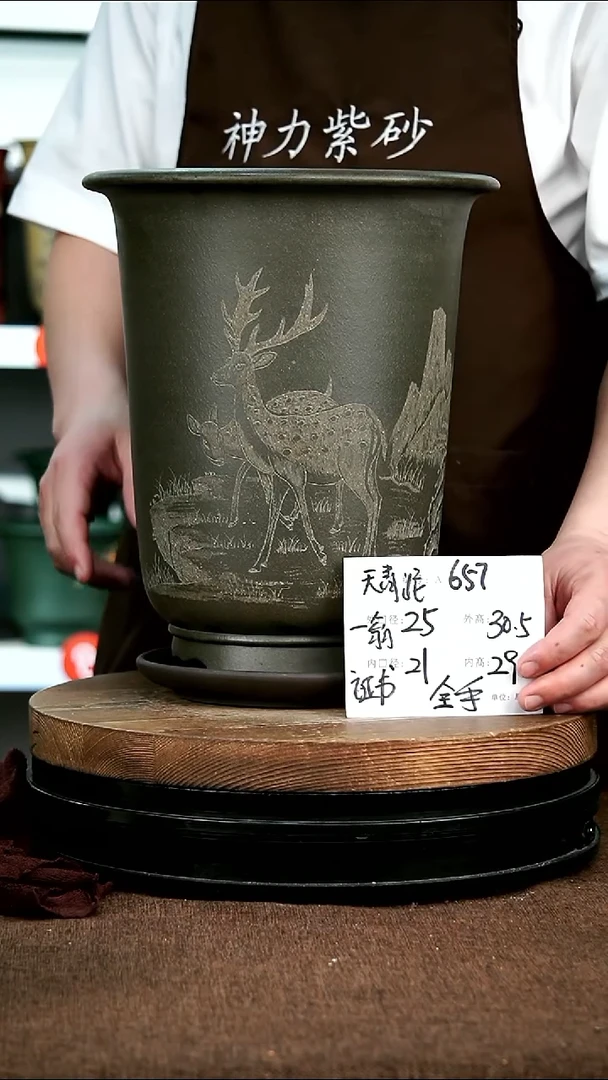 神力紫砂
天青泥 A 657
外口径: 25 外高: 30.5
内口径: 21 内高: 29
证书 全手 单位: